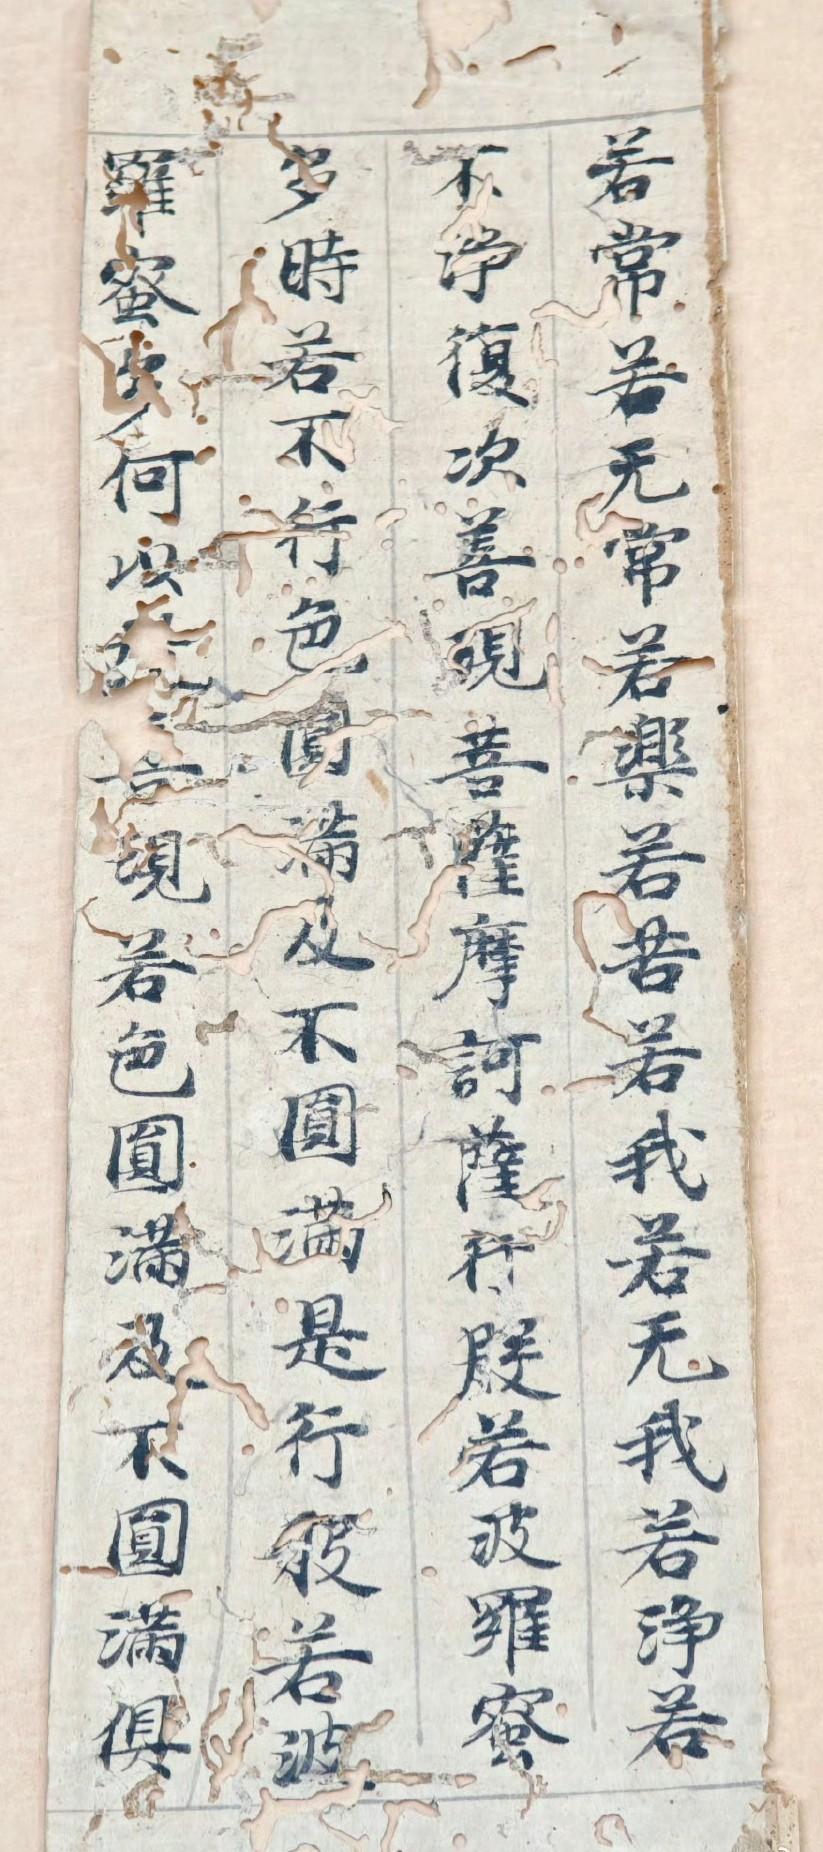 若常若无常若樂若苦若我若无我若淨若
不淨復次善現菩薩摩訶薩行般若波羅蜜
多時若不行色圓滿及不圓滿是行般若波
羅蜜多何以故善現若色圓滿及不圓滿俱